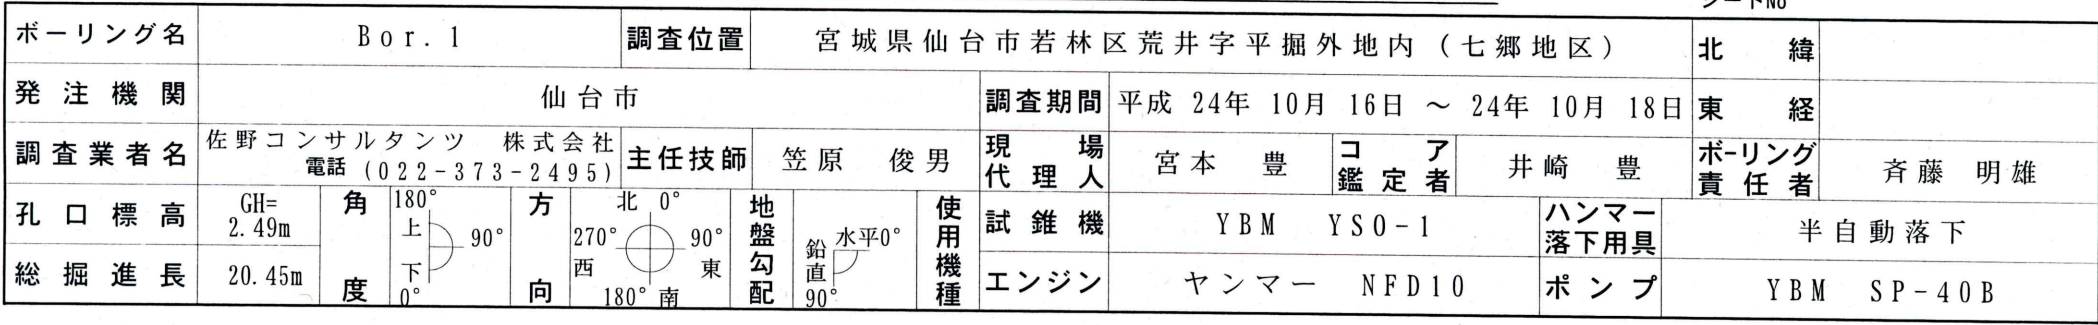 シートNo
ボーリング名 Bor.1 調査位置 宮城県仙台市若林区荒井字平掘外地内(七郷地区) 北緯
発注機関 仙台市 調査期間 平成 24年 10月 16日 ～ 24年 10月 18日 東経
調査業者名 佐野コンサルタンツ 株式会社
電話(022-373-2495)
主任技師 笠原 俊男
現場
代理人
宮本 豊
コア
鑑定者
井崎 豊
ボーリング
責任者
斉藤 明雄
孔口標高 GH=
2.49m
総掘進長 20.45m
角度
180°
上
90°
下
0°
方向
北 0°
270° 90°
西 東
180° 南
地盤勾配
水平0°
鉛直
90°
使用機種
試錐機 YBM YSO-1
ハンマー
落下用具
半自動落下
エンジン ヤンマー NFD10 ポンプ YBM SP-40B